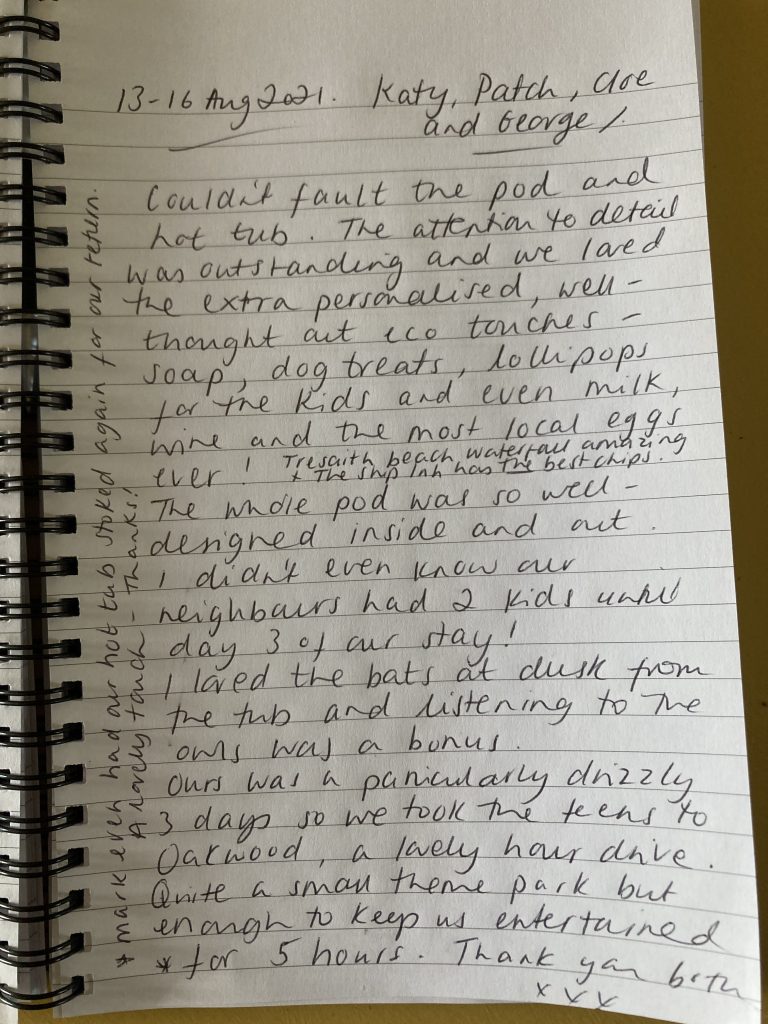 13-16 Aug 2021. Katy, Patch, Cloe
and George /.
Couldn't fault the pod and
hot tub. The attention to detail
was outstanding and we loved
the extra personalised, well-
thought out eco touches -
soap, dog treats, lollipops
for the kids and even milk,
wine and the most local eggs
ever! Tresaith beach waterfall amazing
+ The Ship Inn has The best chips.
The whole pod was so well-
designed inside and out.
I didn't even know our
neighbours had 2 kids until
day 3 of our stay!
I loved the bats at dusk from
the tub and listening to the
owls was a bonus.
Ours was a particularly drizzly
3 days so we took the teens to
Oakwood, a lovely hour drive.
Quite a small theme park but
enough to keep us entertained
* for 5 hours. Thank you both
x x x
* Mark even had our hot tub stoked again for our return.
A lovely touch - Thanks!